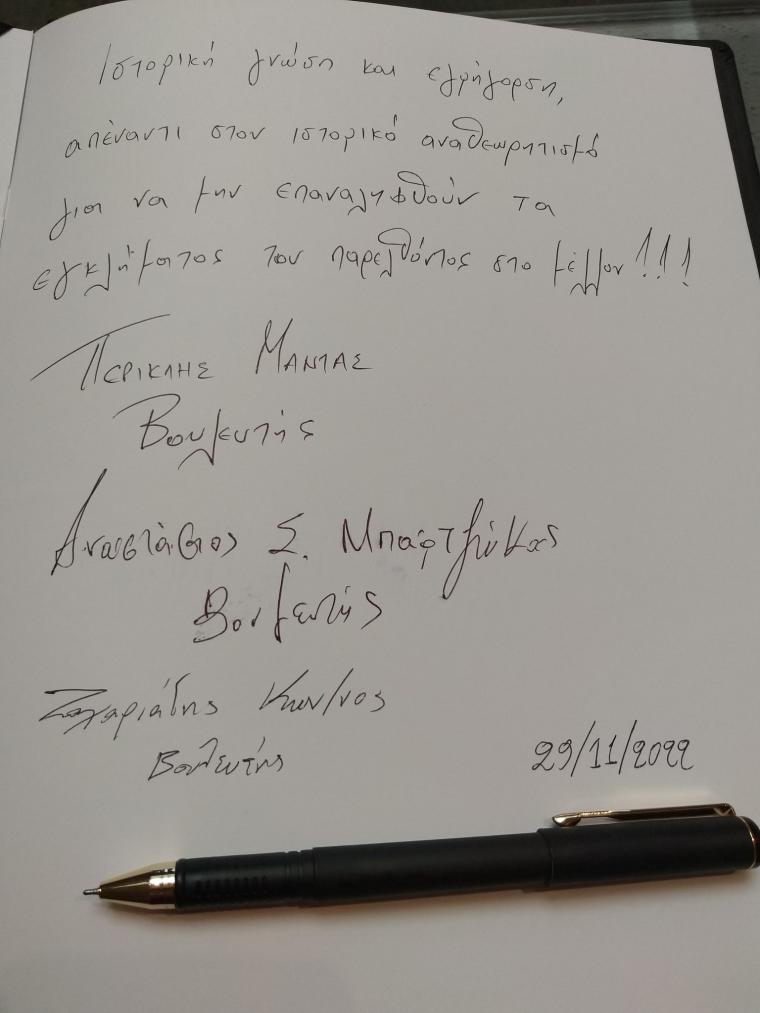 Ιστορική γνώση και εγρήγορση,
απέναντι στον ιστορικό αναθεωρητισμό
για να μην επαναληφθούν τα
εγκλήματος του παρελθόντος στο μέλλον!!!
ΠΕΡΙΚΛΗΣ ΜΑΝΤΑΣ
Βουλευτής
Αναστάσιος Σ. Μπαρτζώκας
Βουλευτής
Ζαχαριάδης Κων/νος
Βουλευτής
29/11/2022